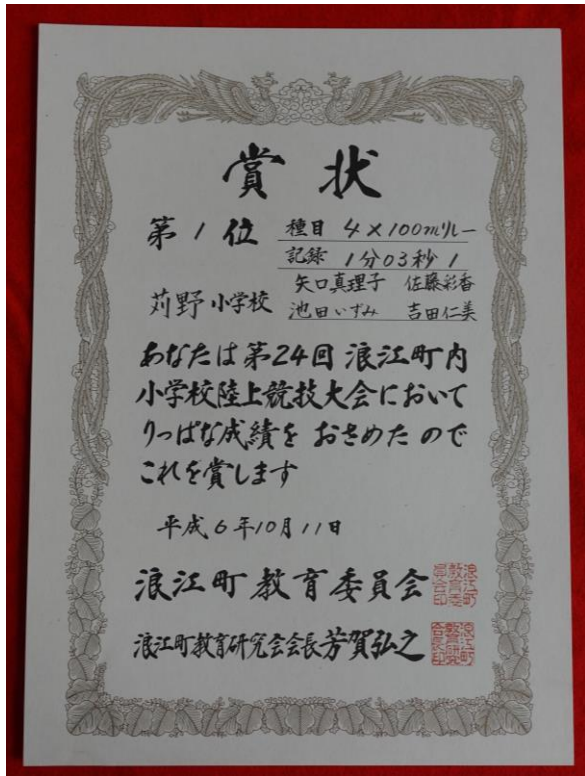 賞状
第1位 種目 4×100mリレー
記録 1分03秒1
苅野小学校 矢口真理子 佐藤彩香
池田いずみ 吉田仁美
あなたは第24回浪江町内
小学校陸上競技大会において
りっぱな成績をおさめたので
これを賞します
平成6年10月11日
浪江町教育委員会
浪江町教育委員会印
浪江町教育研究会会長芳賀弘之